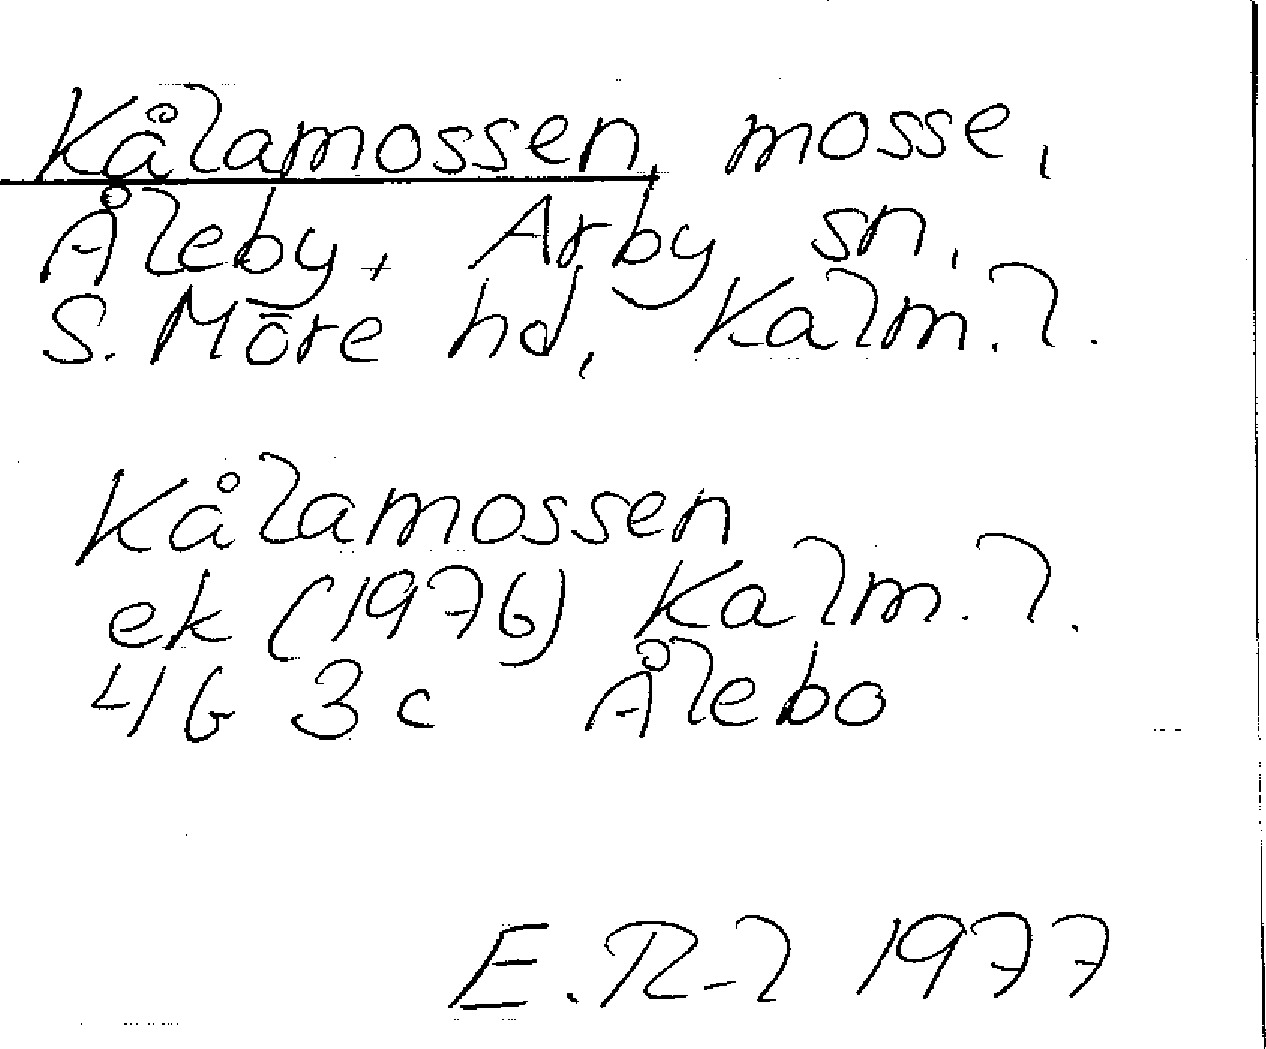 Kålamossen, mosse,
Åleby, Arby sn,
S. Möre hd, Kalm. l.
Kålamossen
ek (1976) Kalm. l.
4G 3c Ålebo
E. R-l 1977